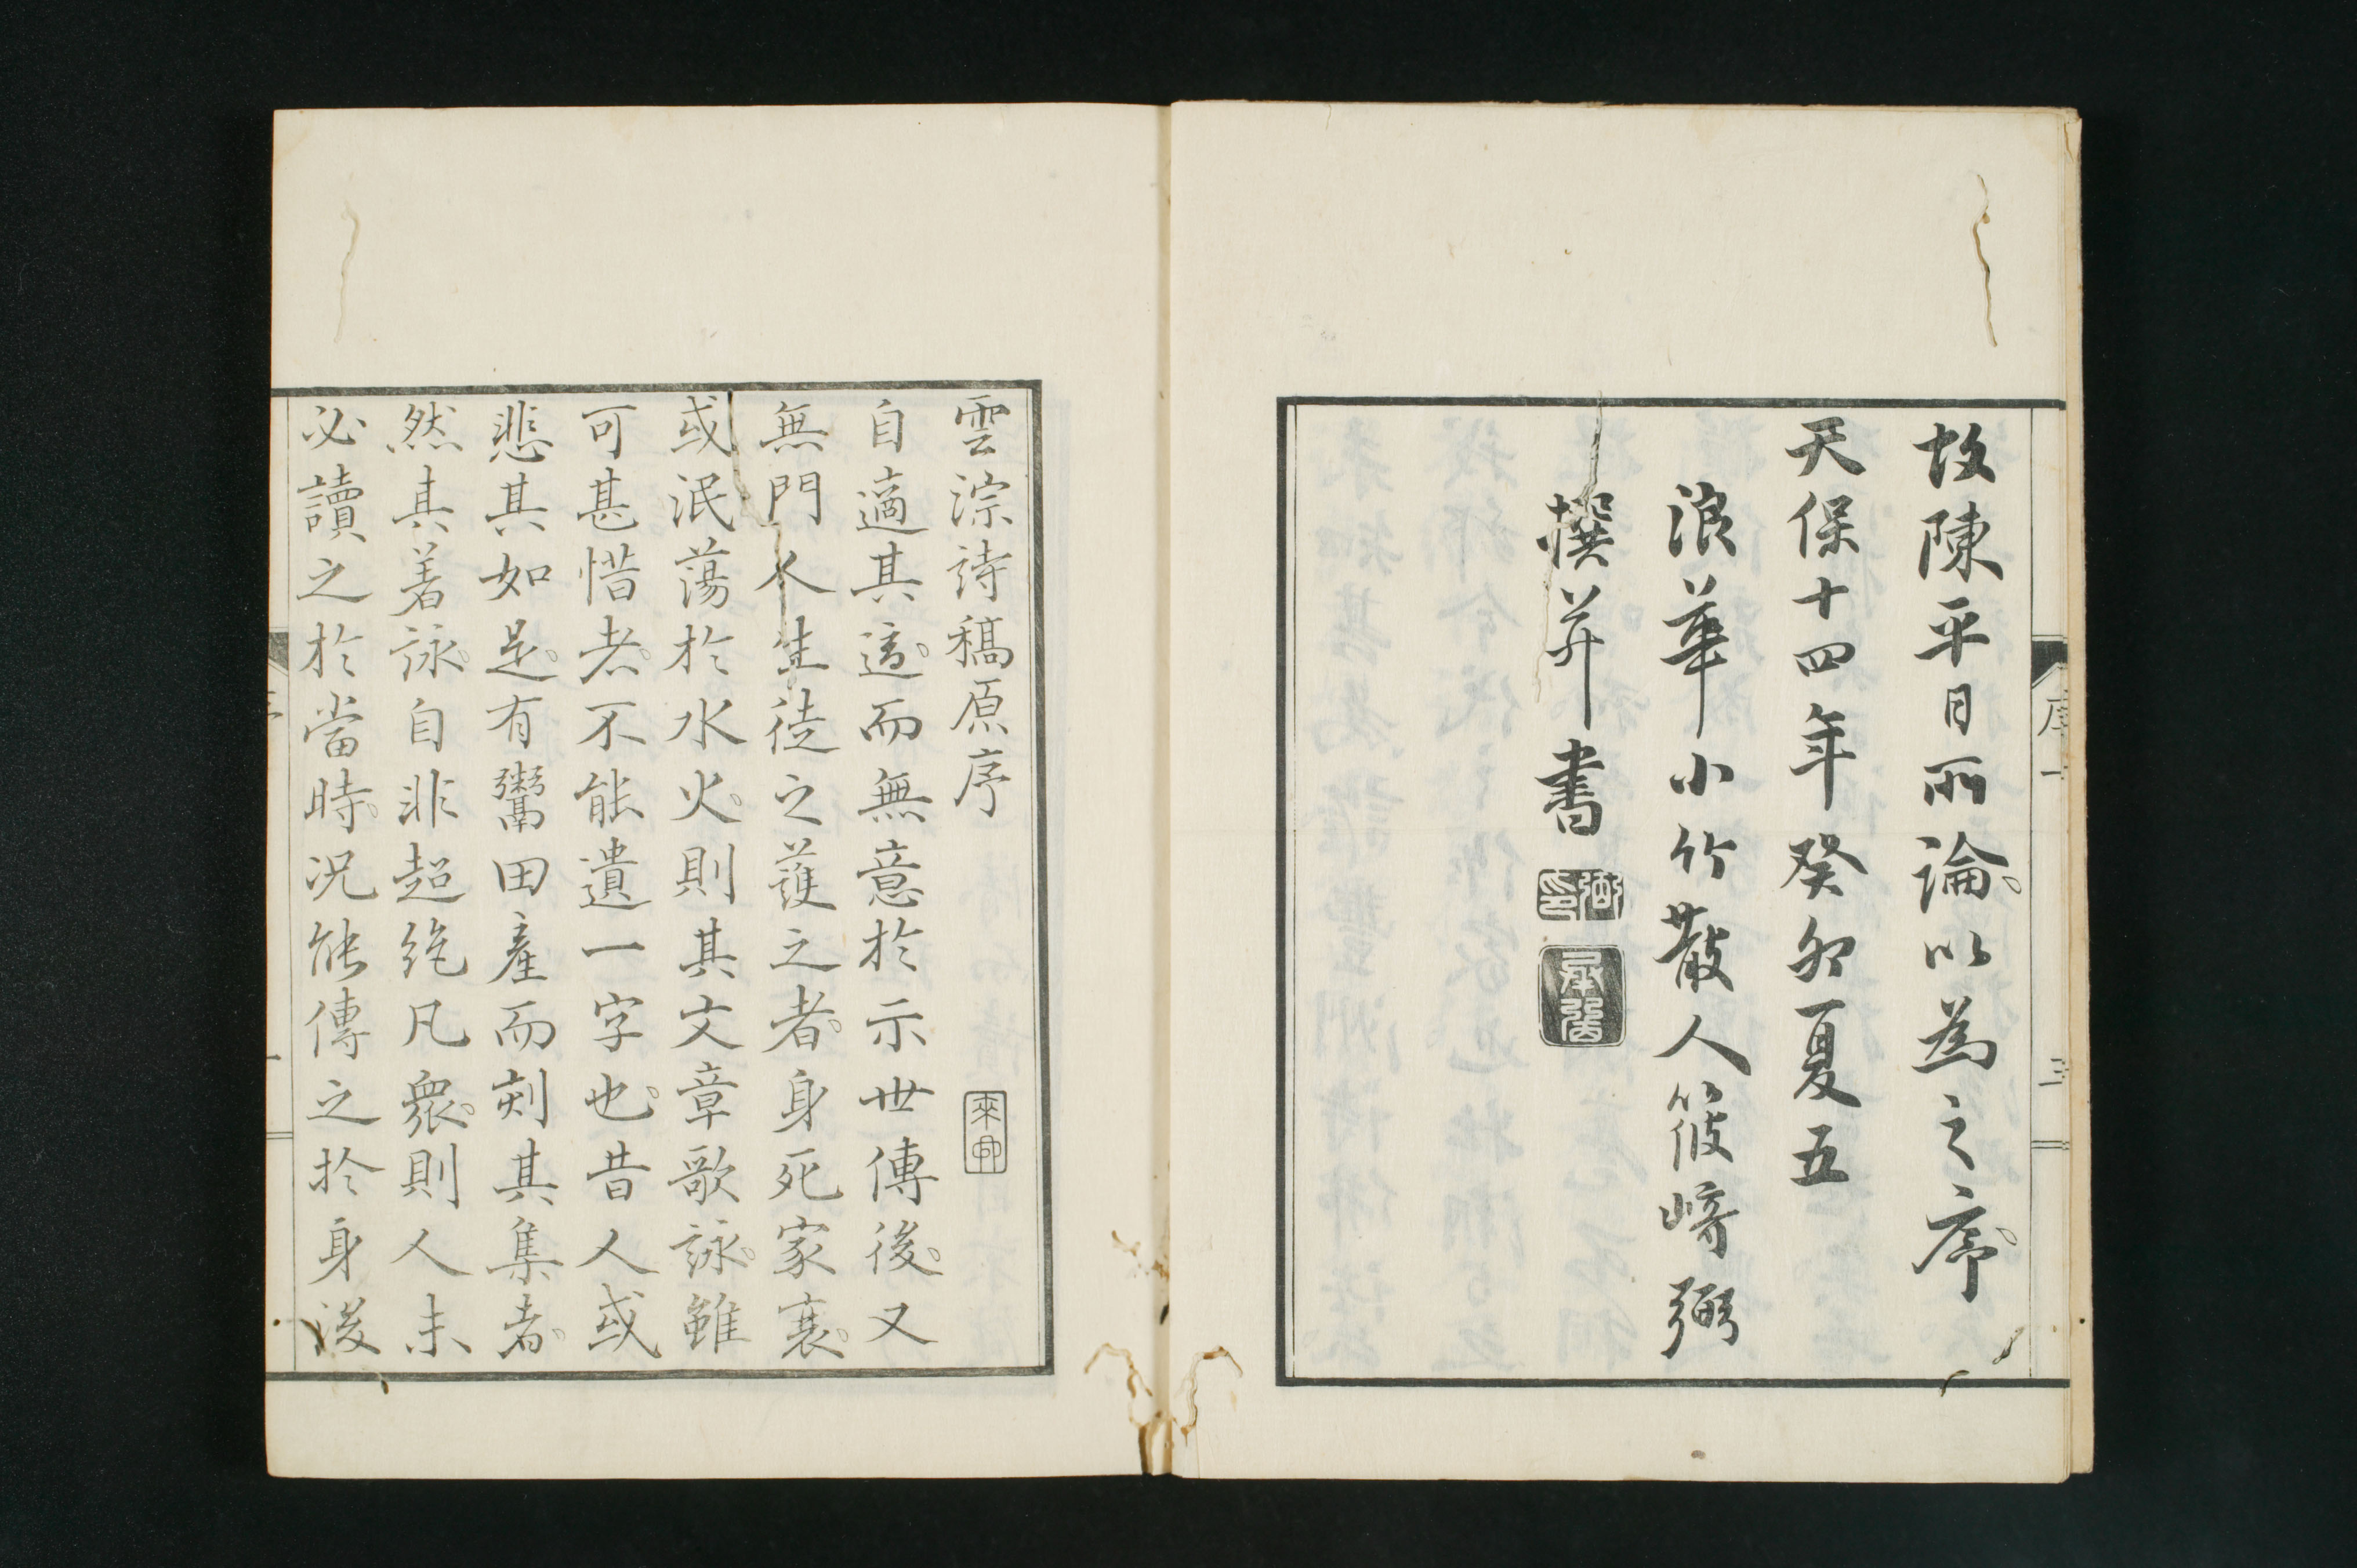 故陳平日所論。以為之序。
天保十四年癸卯夏五
浪華小竹散人筱崎弼
撰并書
雲淙詩稿原序
自適其適。而無意於示世傳後。又
無門人生徒之護之者。身死家衰。
或泯蕩於水火。則其文章歌詠。雖
可甚惜者。不能遺一字也。昔人或
悲其如是。有鬻田產而刻其集者。
然其著詠。自非超絶凡衆。則人未
必讀之於當時。況能傳之於身後